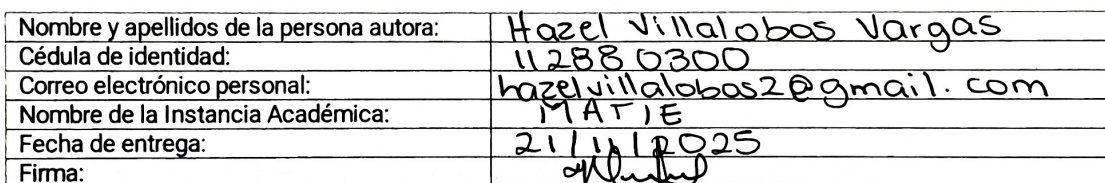 Nombre y apellidos de la persona autora: Hazel Villalobos Vargas
Cédula de identidad: 112880300
Correo electrónico personal: hazelvillalobos2@gmail.com
Nombre de la Instancia Académica: MATIE
Fecha de entrega: 21/11/2025
Firma: